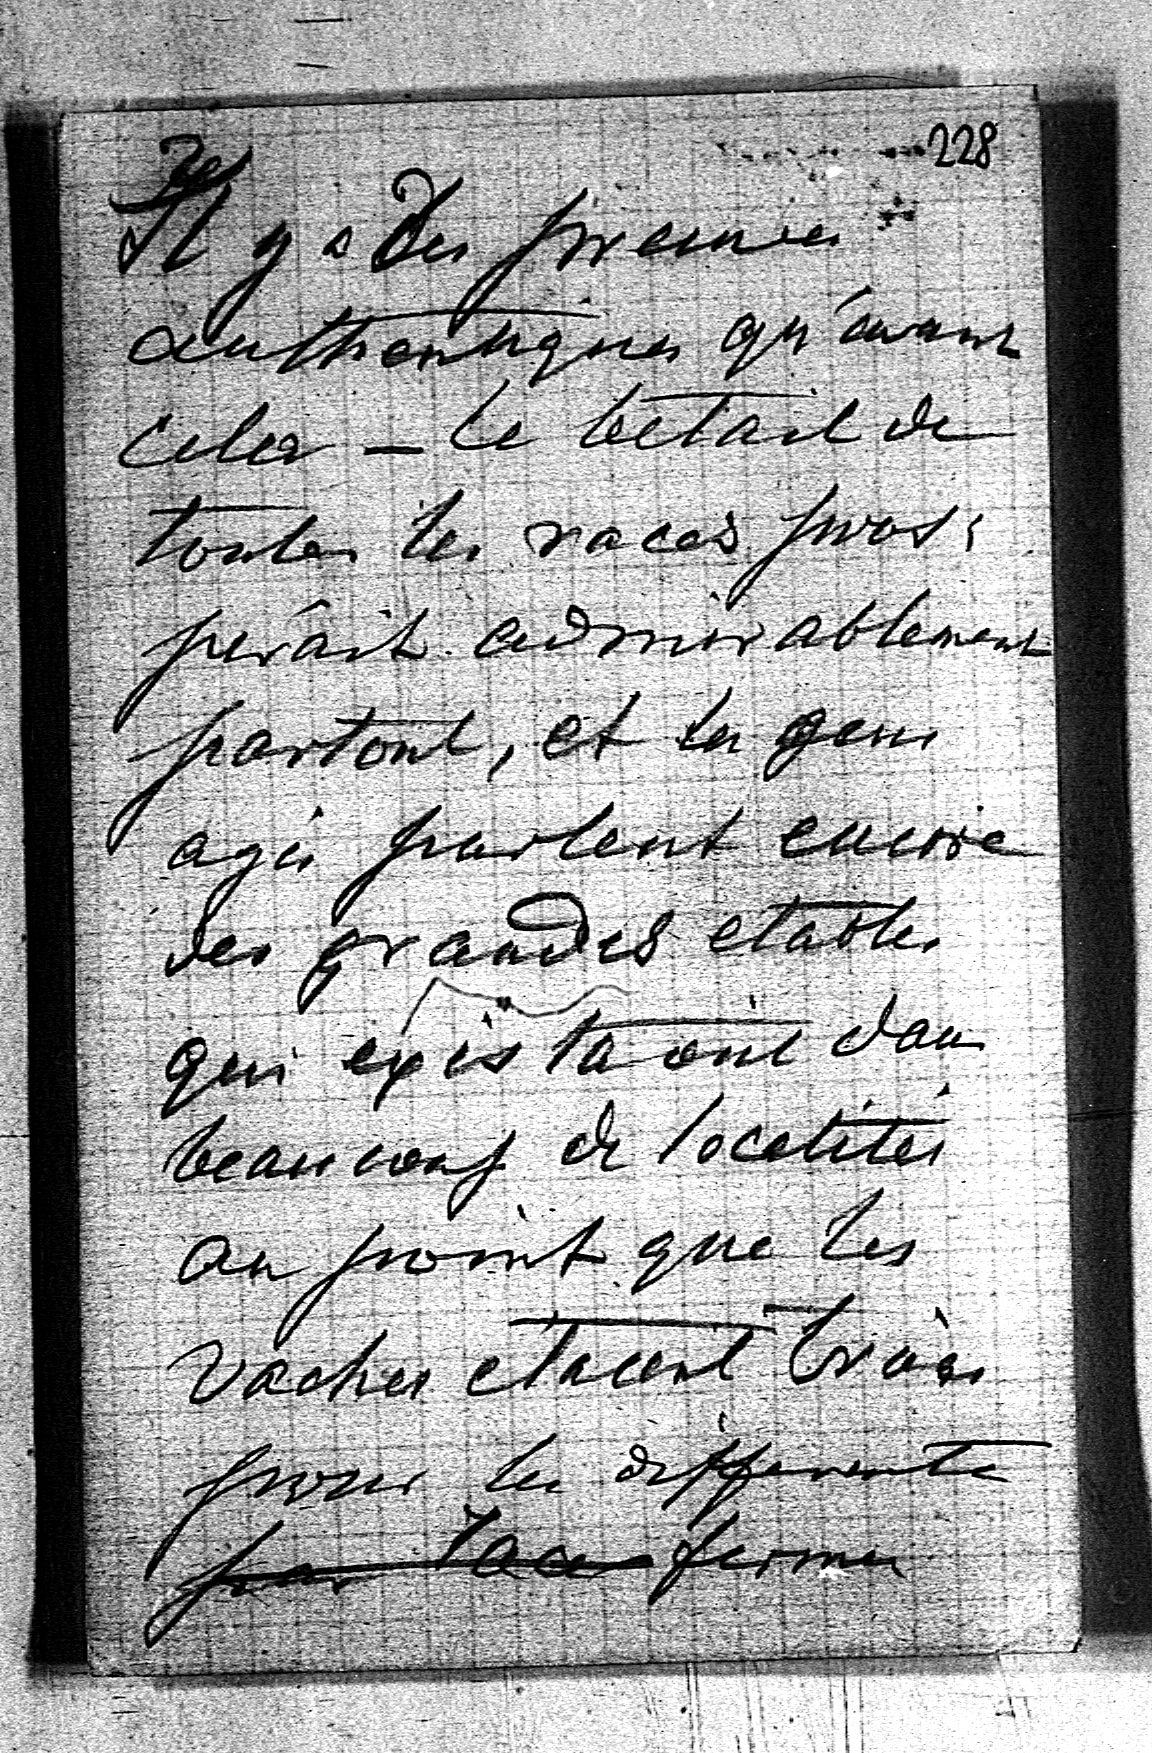 228
Il y a des preuves
authentiques qu'avant
cela – le bétail de
toutes les races pros:
pérait admirablement
partout, et les gens
agés parlent encore
des grandes etables
qui existaient dans
beaucoup de localités
au point que les
vaches etaient triées
pour les differents
par races fermes